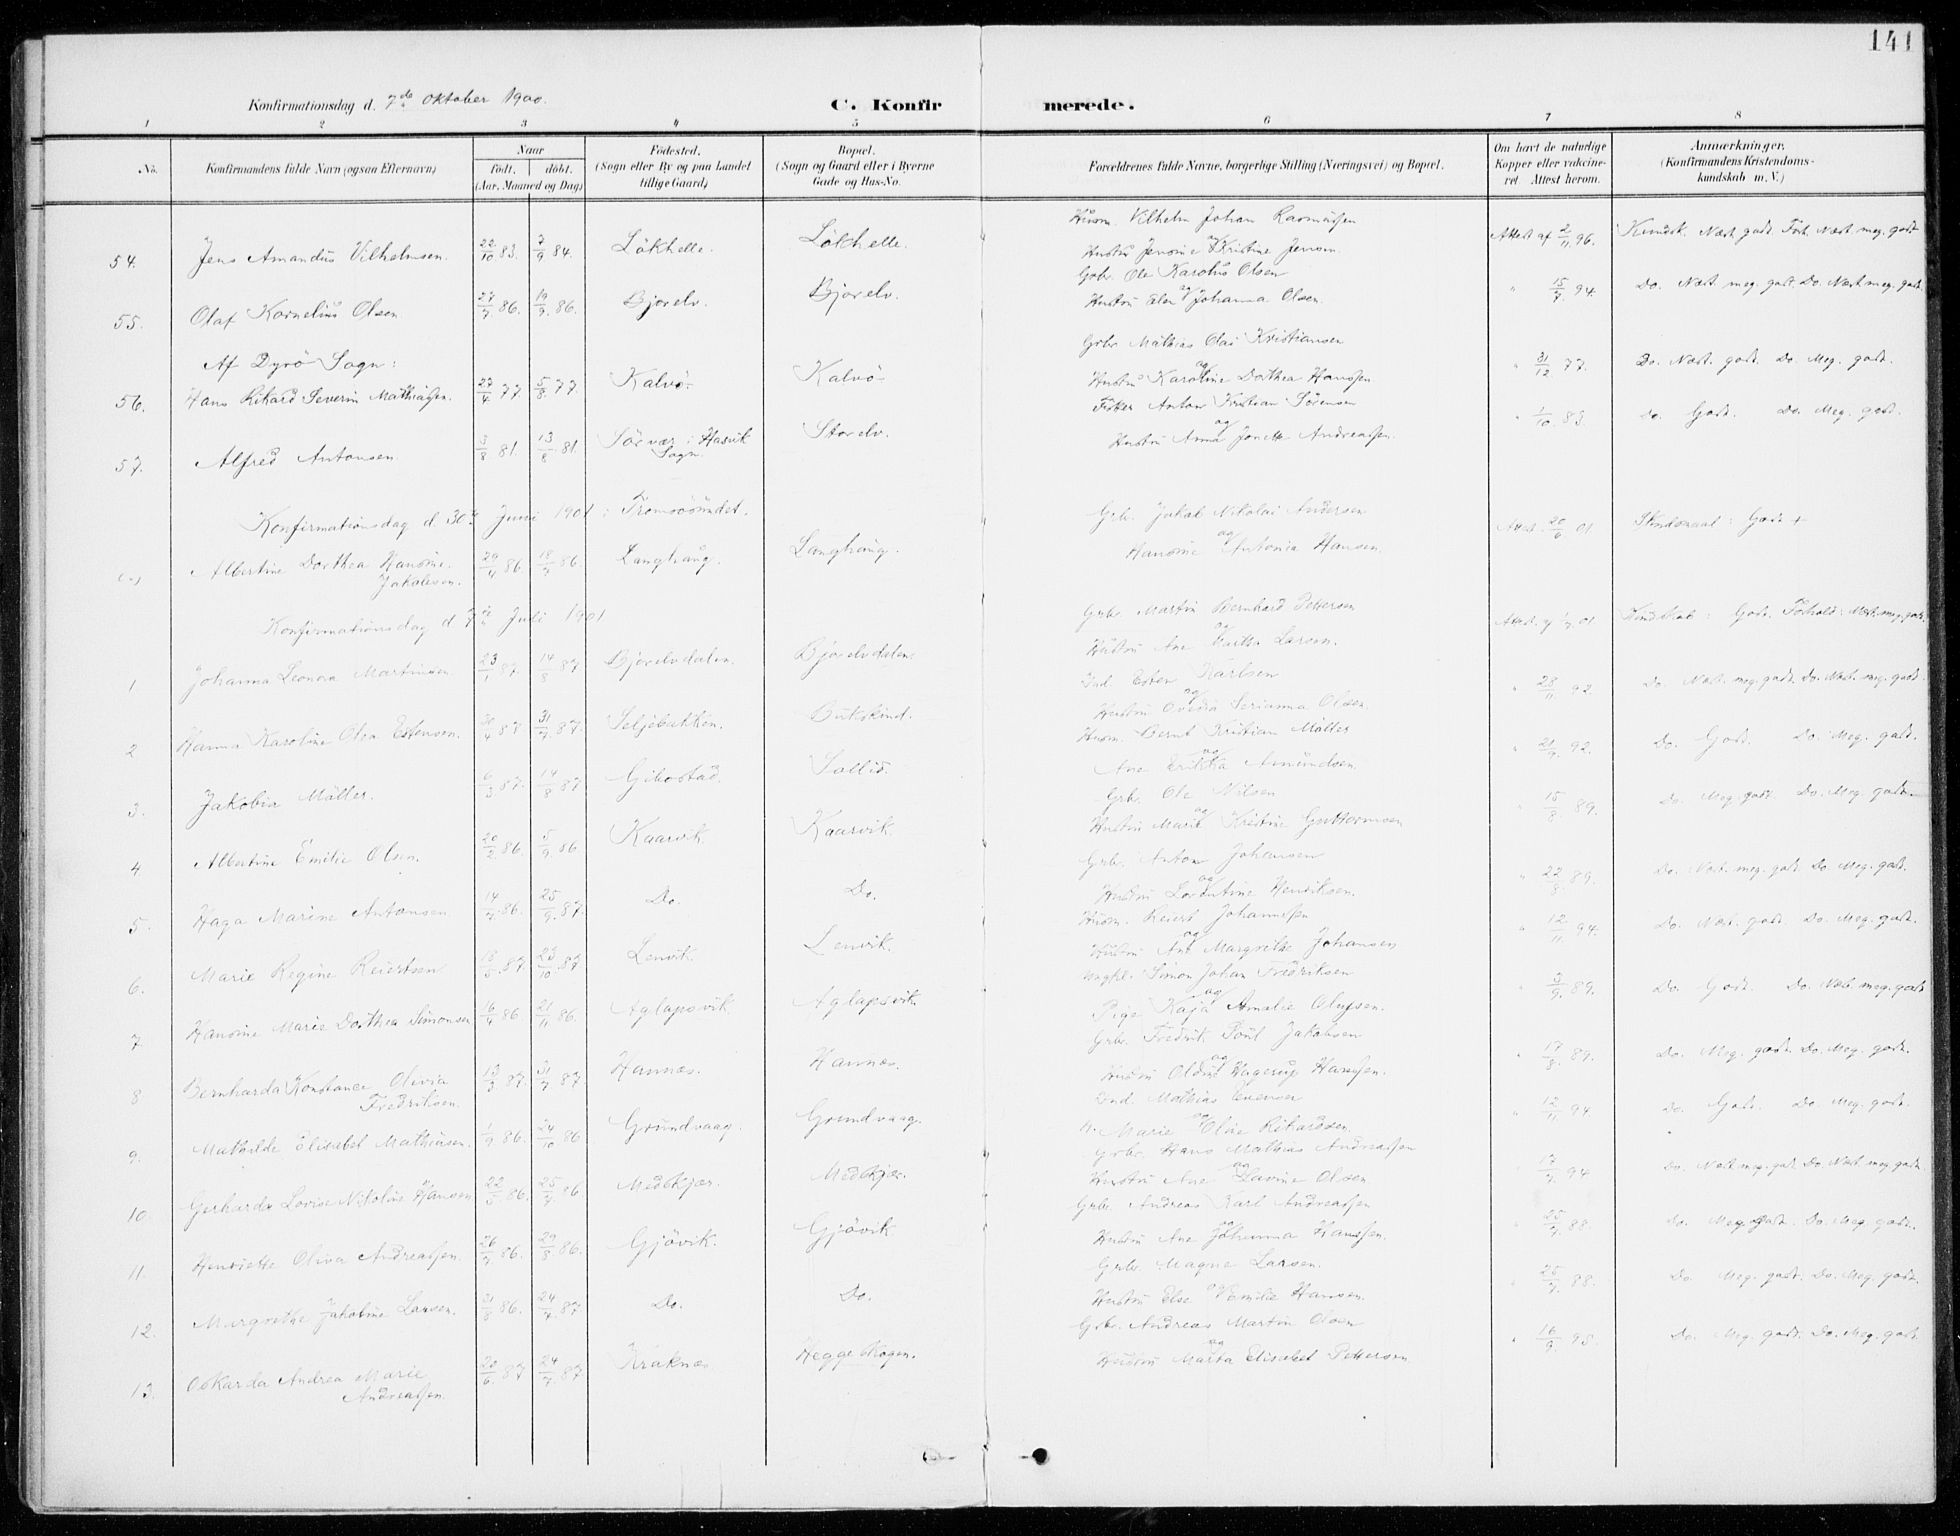 141
Konfirmationsdag d. 7de Oktober 1900.
C. Konfirmerede.
1 2 3 4 5 6 7 8
No. Konfirmandens fulde Navn (ogsaa Efternavn) Naar født. døbt. (Aar, Maaned og Dag) Fødested. (Sogn eller By og paa Landet tillige Gaard) Bopæl. (Sogn og Gaard eller i Byerne Gade og Hus-No. Forældrenes fulde Navne, borgerlige Stilling (Næringsvei) og Bopæl. Om havt de naturlige Kopper eller vakcineret. Attest herom. Anmærkninger. (Konfirmandens Kristendomskundskab m. V.)
54. Jens Amandus Vilhelmsen. 22/10 83. 7/9 84. Løkhelle. Løkhelle. Husm. Vilhelm Johan Rasmussen og Hustru Jensine Kristine Jensen. Attest af 2/11 96. Kundsk. Næst. godt. Forh. Næst. meg. godt
55. Olaf Kornelius Olsen 27/7 86. 19/9 86. Bjorelv. Bjorelv. Gbr. Ole Karolus Olsen og Hustru Elen Johanna Olsen. " 15/7 94. Do. Næst. meg. godt. Do. Næst meg. godt.
Af Dyrø Sogn:
56. Hans Rikard Severin Mathiassen. 27/4 77. 5/8 77. Kalvø Kalvø Grbr. Mathias Olai Kristiansen og Hustru Karoline Dorthea Hanssen " 31/12 77. Do. Næst. godt. Do. Meg. godt.
57. Alfred Antonsen 3/8 81. 13/8 81. Sørvær i Hasvik Sogn. Storelv. Fisker Anton Kristian Sørensen og Hustru Anna Jonette Andreassen. " 1/10 83. Do. Godt. Do. Meg. godt.
Konfirmationsdag d. 30te Juni 1901 i Tromsøsundet.
Albertine Dorthea Hansine Jakobsen. 29/4 86 18/7 86. Langhaug. Langhaug. Grb. Jakob Nikolai Andersen og Hansine Antonia Hansen. Attest. 20/6 01 Godt +
Konfirmationsdag d 7de Juli 1901
1 Johanna Leonora Martinsen 23/1 87. 14/8 87 Bjorelvdalen. Bjorelvdalen. Grbr. Martin Bernhard Pettersen og Hustru Ane Larsen. Attest. af 1/7 01. Kundskab: Godt. Forhold: Næst. meg. godt.
2 Hanna Karoline Olea Estensen. 30/4 87 31/7 87. Seljebakken. Bukskind. Ind. Esten Karlsen og Hustru Ovedia Serianna Olsen. " 28/11 92. Do. Næst. meg. godt. Do. Næst. meg. godt.
3. Jakobia Møller. 6/3 87. 14/8 87 Gibostad. Sollid. Husm. Bernt Kristian Møller og Ane Erikka Amundsen. " 21/9 92. Do. Godt. Do. Meg. godt.
4. Albertine Emilie Olsen. 20/2 86. 5/9 86 Kaarvik Kaarvik Grbr. Ole Nilsen og Hustru Marit Kristine Guttormsen " 15/8 89. Do. Meg. godt. Do. Meg. godt.
5. Haga Marine Antonsen 14/7 86. 25/9 87. Do. Do. Grbr. Anton Johansen og Hustru Lorentine Henriksen. " 22/8 89. Do. Næst. meg. godt Do. Meg. godt.
6. Marie Regine Reiertsen 18/5 87. 23/10 87 Lenvik. Lenvik. Husm. Reiert Johannessen og Hustru Ane Margrethe Johansen " 12/11 94. Do. Næst. godt. Do. Meg. godt.
7. Hansine Marie Dorthea Simonsen 16/4 86 21/11 86. Aglapsvik. Aglapsvik. Ungkl. Simon Johan Fredriksen og Pige Kaja Amalie Olufsen. " 3/9 89. Do. Godt. Do. Næst meg. godt
8 Bernharda Konstance Olivia Fredriksen. 13/3 87. 31/7 87. Havnnæs. Havnnæs. Grbr. Fredrik Poul Jakobsen og Hustru Hagerup Hanssen. " 17/8 89. Do. Meg. godt. Do. Meg. godt.
9. Mathilde Elisabet Mathiasen. 1/9 86. 24/10 86. Grundvaag. Grundvaag. Ind. Mathias Evensen og H. Marie Oline Rikardsen. " 12/11 94 Do. Godt. Do. Meg. godt.
10. Gerharda Lovise Nikoline Hansen 22/5 86. 25/7 86 Medkjær. Medkjær. Grbr. Hans Mathias Andreassen og Hustru Ane Lavine Olsen. " 17/7 94 Do. Næst meg. godt Do. Næst. meg. godt.
11. Henriette Oliva Andreassen. 26/7 86. 29/8 86. Gjøvik. Gjøvik. Grbr. Andreas Karl Andreassen og Hustru Ane Johanna Hanssen. " 25/7 88. Do. Meg. godt. Do. Meg. godt.
12. Margrethe Jakobine Larsen. 31/8 86. 24/7 87 Do. Do. Grbr. Magne Larsen. og Hustru Else Emilie Hansen. " 25/7 88. Do. Meg. godt. Do. Meg. godt.
13. Oskarda Andrea Marie Andreassen. 20/6 87 24/7 87 Kraknes Heggeskogen. Grbr. Andreas Martin Olsen og Hustru Marta Elisabet Pettersen " 16/9 95. Do. Meg. godt. Do. Meg. godt.